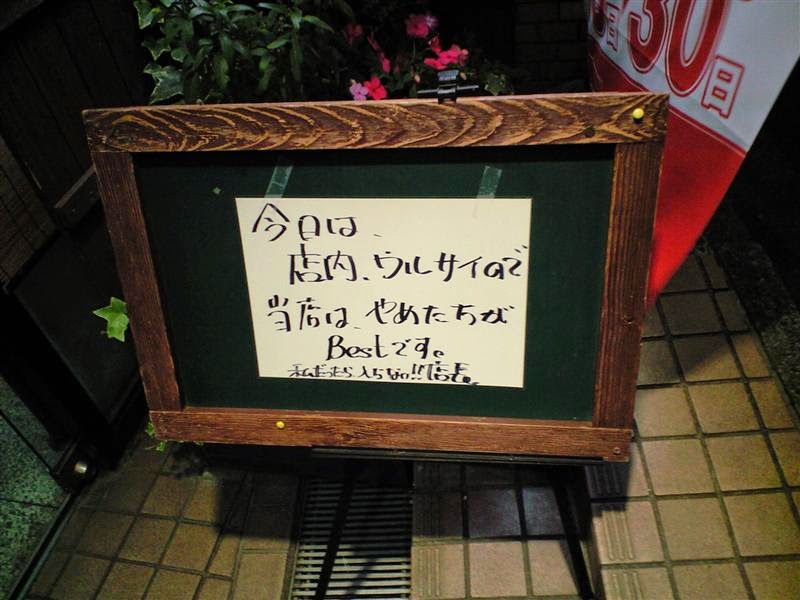 今日は、
店内、ウルサイので
当店は、やめたちが
Bestです。
私だったら入らない!!店長
30日